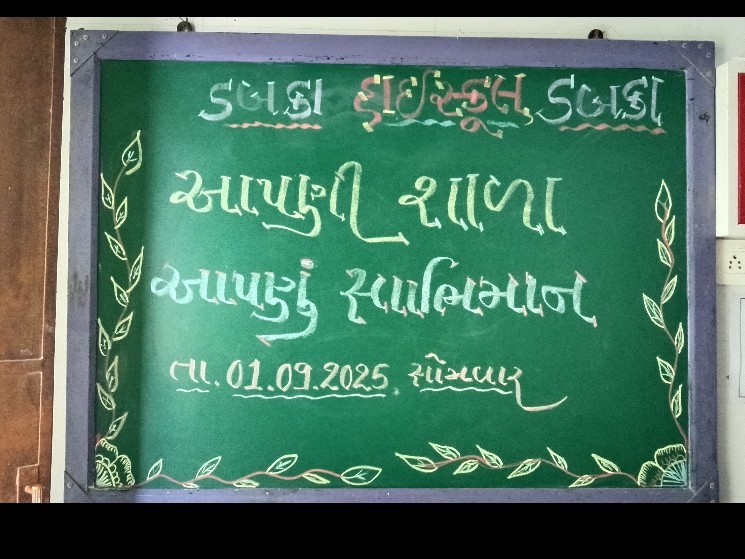 ડબકા હાઈસ્કૂલ ડબકા
આપણી શાળા
આપણું સ્વાભિમાન
તા. 01.09.2025, સોમવાર